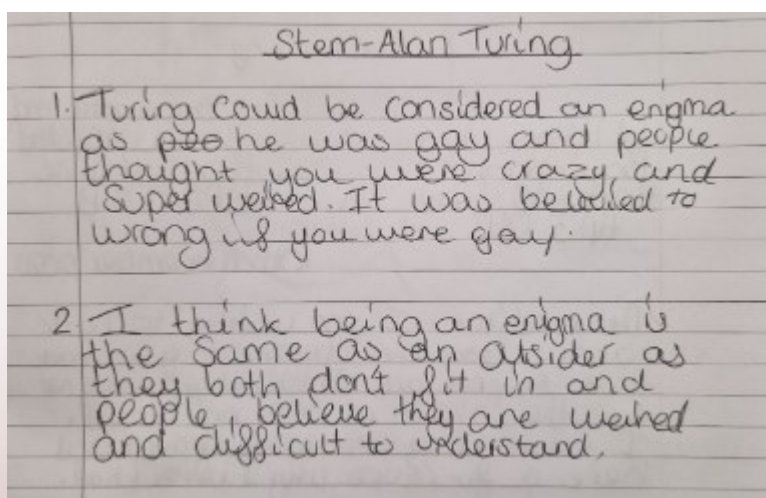 Stem-Alan Turing
1. Turing could be considered an enigma
as he was gay and people
thought you were crazy and
super weired. It was to
wrong if you were gay.
2 I think being an enigma is
the same as an outsider as
they both dont fit in and
people, believe they are weired
and difficult to understand.